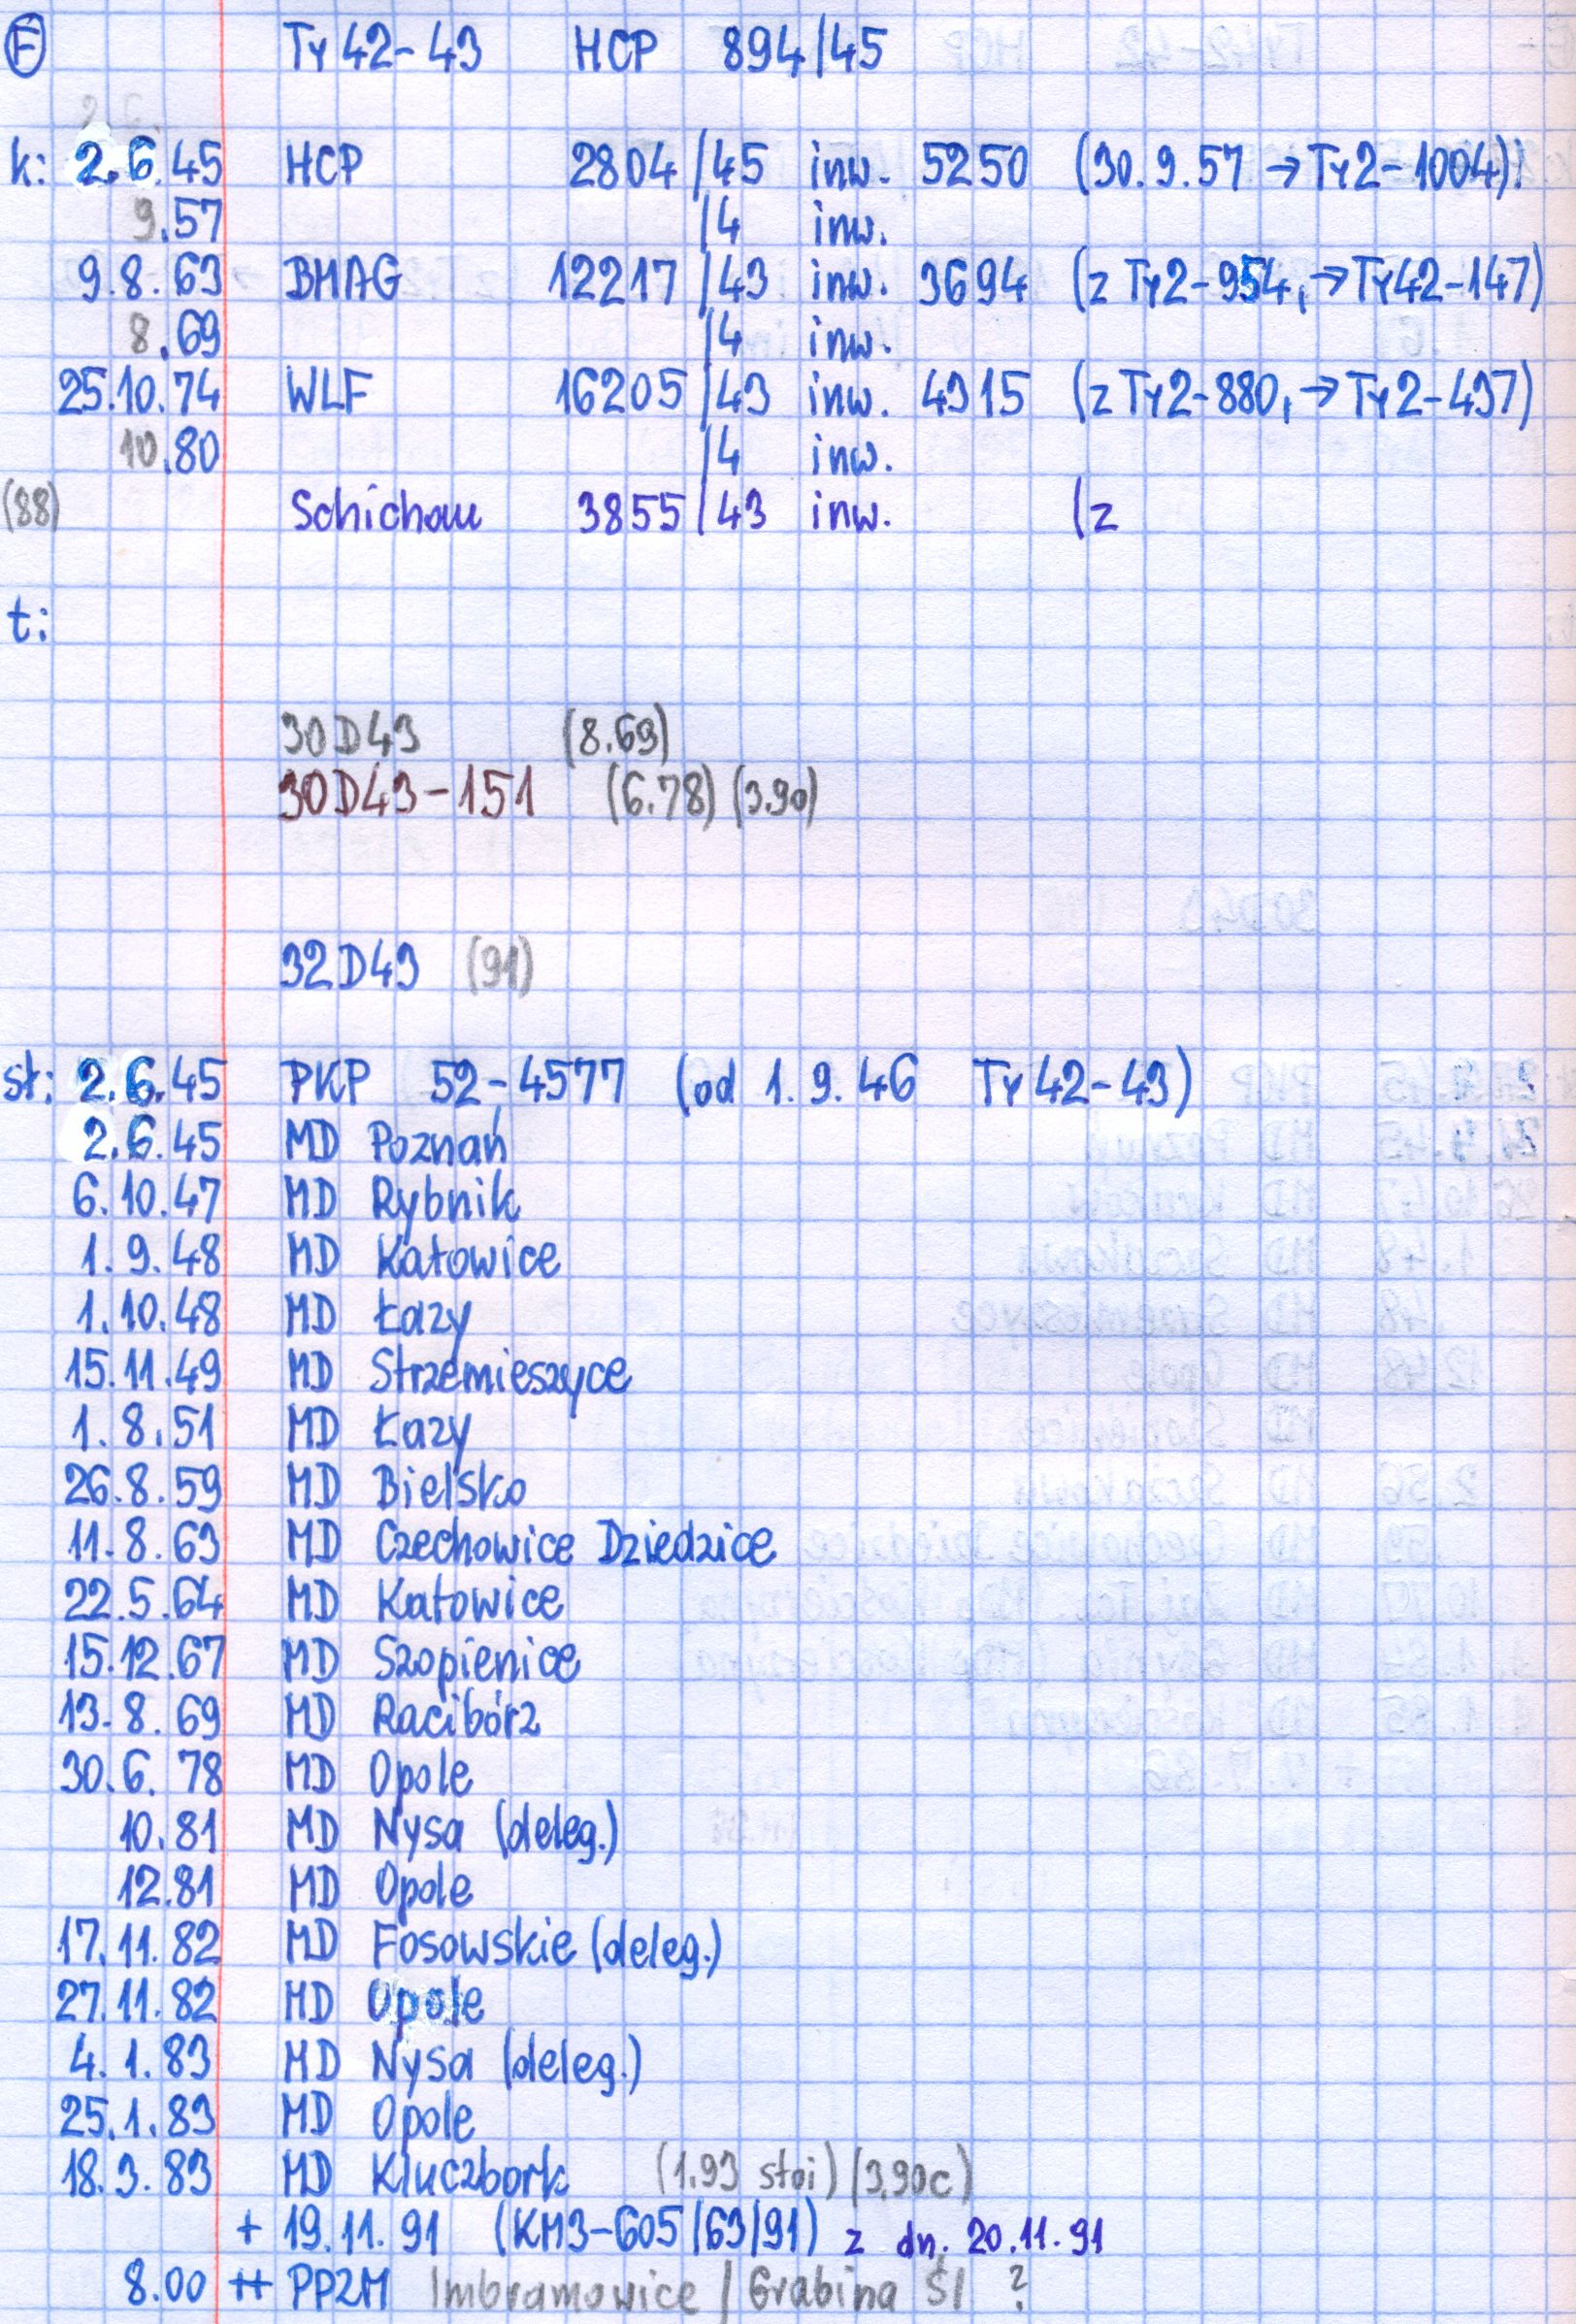 F Ty42-43 HCP 894/45
k: 2.6.45 HCP 2804/45 inw. 5250 (30.9.57 → Ty2-1004)!
9.57 /4 inw.
9.8.63 BMAG 12217/43 inw. 3694 (z Ty2-954, → Ty42-147)
8.69 /4 inw.
25.10.74 WLF 16205/43 inw. 4315 (z Ty2-880, → Ty2-437)
10.80 /4 inw.
(88) Schichau 3855/43 inw. (z
t:
30D43 (8.69)
30D43-151 (6.78) (3.90)
32D43 (91)
st: 2.6.45 PKP 52-4577 (od 1.9.46 Ty42-43)
2.6.45 MD Poznań
6.10.47 MD Rybnik
1.9.48 MD Katowice
1.10.48 MD Łazy
15.11.49 MD Strzemieszyce
1.8.51 MD Łazy
26.8.59 MD Bielsko
11.8.63 MD Czechowice Dziedzice
22.5.64 MD Katowice
15.12.67 MD Szopienice
13.8.69 MD Racibórz
30.6.78 MD Opole
10.81 MD Nysa (deleg.)
12.81 MD Opole
17.11.82 MD Fosowskie (deleg.)
27.11.82 MD Opole
4.1.83 MD Nysa (deleg.)
25.1.83 MD Opole
18.3.83 MD Kluczbork (1.93 stoi) (3.90c)
+ 19.11.91 (KM3-605/63/91) z dn. 20.11.91
8.00 ++ PPZM Imbramowice / Grabina Śl ?